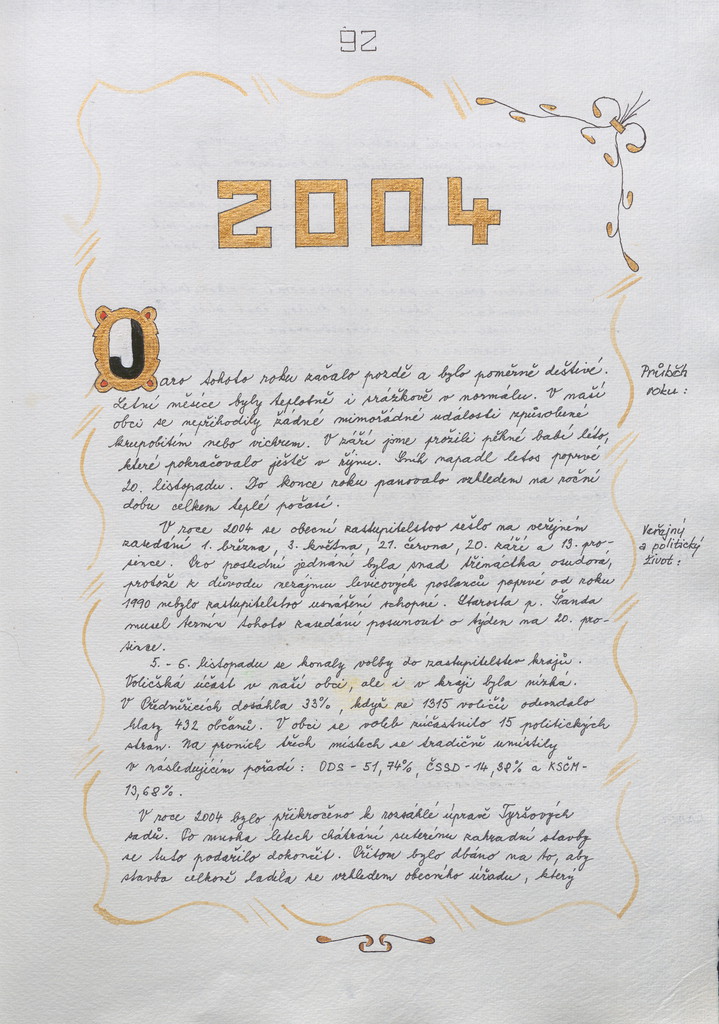 92
2004
Jaro tohoto roku začalo pozdě a bylo poměrně deštivé.
Průběh
roku:
Letní měsíce byly teplotně i srážkově v normálu. V naší
obci se nepřihodily žádné mimořádné události způsobené
krupobitím nebo vichrem. V září jsme prožili pěkné babí léto,
které pokračovalo ještě v říjnu. Sníh napadl letos poprvé
20. listopadu. Do konce roku panovalo vzhledem na roční
dobu celkem teplé počasí.
V roce 2004 se obecní zastupitelstvo sešlo na veřejném
Veřejný
a politický
život:
zasedání 1. března, 3. května, 21. června, 20. září a 13. pro-
since. Pro poslední jednání byla snad třináctka osudová,
protože z důvodu nezájmu levicových poslanců poprvé od roku
1990 nebylo zastupitelstvo usnášení schopné. Starosta p. Šanda
musel termín tohoto zasedání posunout o týden na 20. pro-
since.
5. - 6. listopadu se konaly volby do zastupitelstev krajů.
Voličská účast v naší obci, ale i v kraji byla nízká.
V Předměřicích dosáhla 33%, když ze 1315 voličů odevzdalo
hlasy 432 občanů. V obci se voleb zúčastnilo 15 politických
stran. Na prvních třech místech se tradičně umístily
v následujícím pořadí: ODS - 51,74%, ČSSD - 14,38% a KSČM -
13,68%.
V roce 2004 bylo přikročeno k rozsáhlé úpravě Tyršových
sadů. Po mnoha letech chátrání suterénu zahradní stavby
se tuto podařilo dokončit. Přitom bylo dbáno na to, aby
stavba celkově ladila se vzhledem obecního úřadu, který